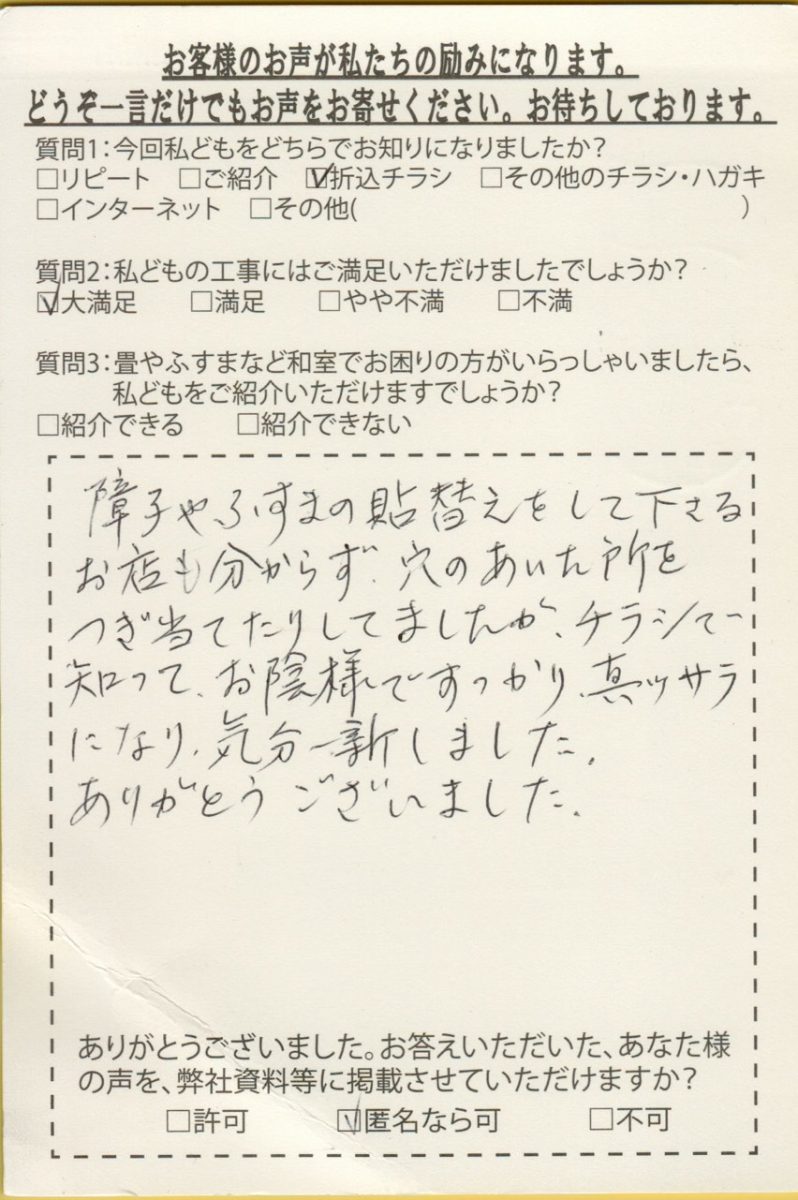 お客様のお声が私たちの励みになります。
どうぞ一言だけでもお声をお寄せください。お待ちしております。
質問1：今回私どもをどちらでお知りになりましたか？
□リピート　□ご紹介　☑折込チラシ　□その他のチラシ・ハガキ
□インターネット　□その他(　　　　　　　　　　　　　　　)
質問2：私どもの工事にはご満足いただけましたでしょうか？
☑大満足　　□満足　　□やや不満　　□不満
質問3：畳やふすまなど和室でお困りの方がいらっしゃいましたら、
私どもをご紹介いただけますでしょうか？
□紹介できる　　□紹介できない
障子やふすまの貼替えをして下さる
お店も分からず、穴のあいた所を
つぎ当てたりしてましたが、チラシで
知って、お陰様ですっかり、真ッサラ
になり、気分一新しました。
ありがとうございました。
ありがとうございました。お答えいただいた、あなた様
の声を、弊社資料等に掲載させていただけますか？
□許可　　☑匿名なら可　　□不可